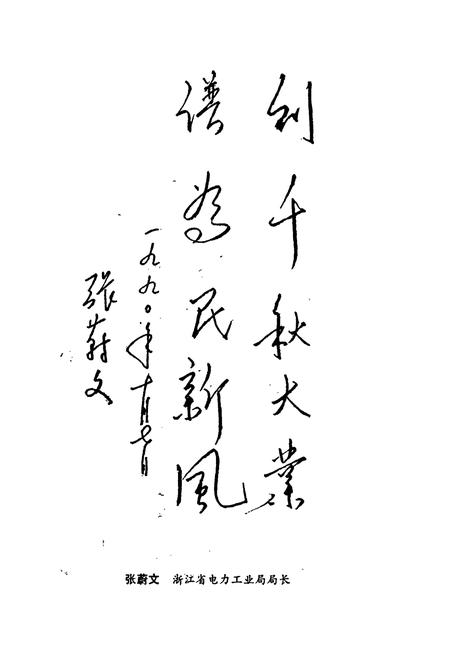 创千秋大业
谱为民新风
一九九〇年十月七日
张蔚文
张蔚文 浙江省电力工业局局长